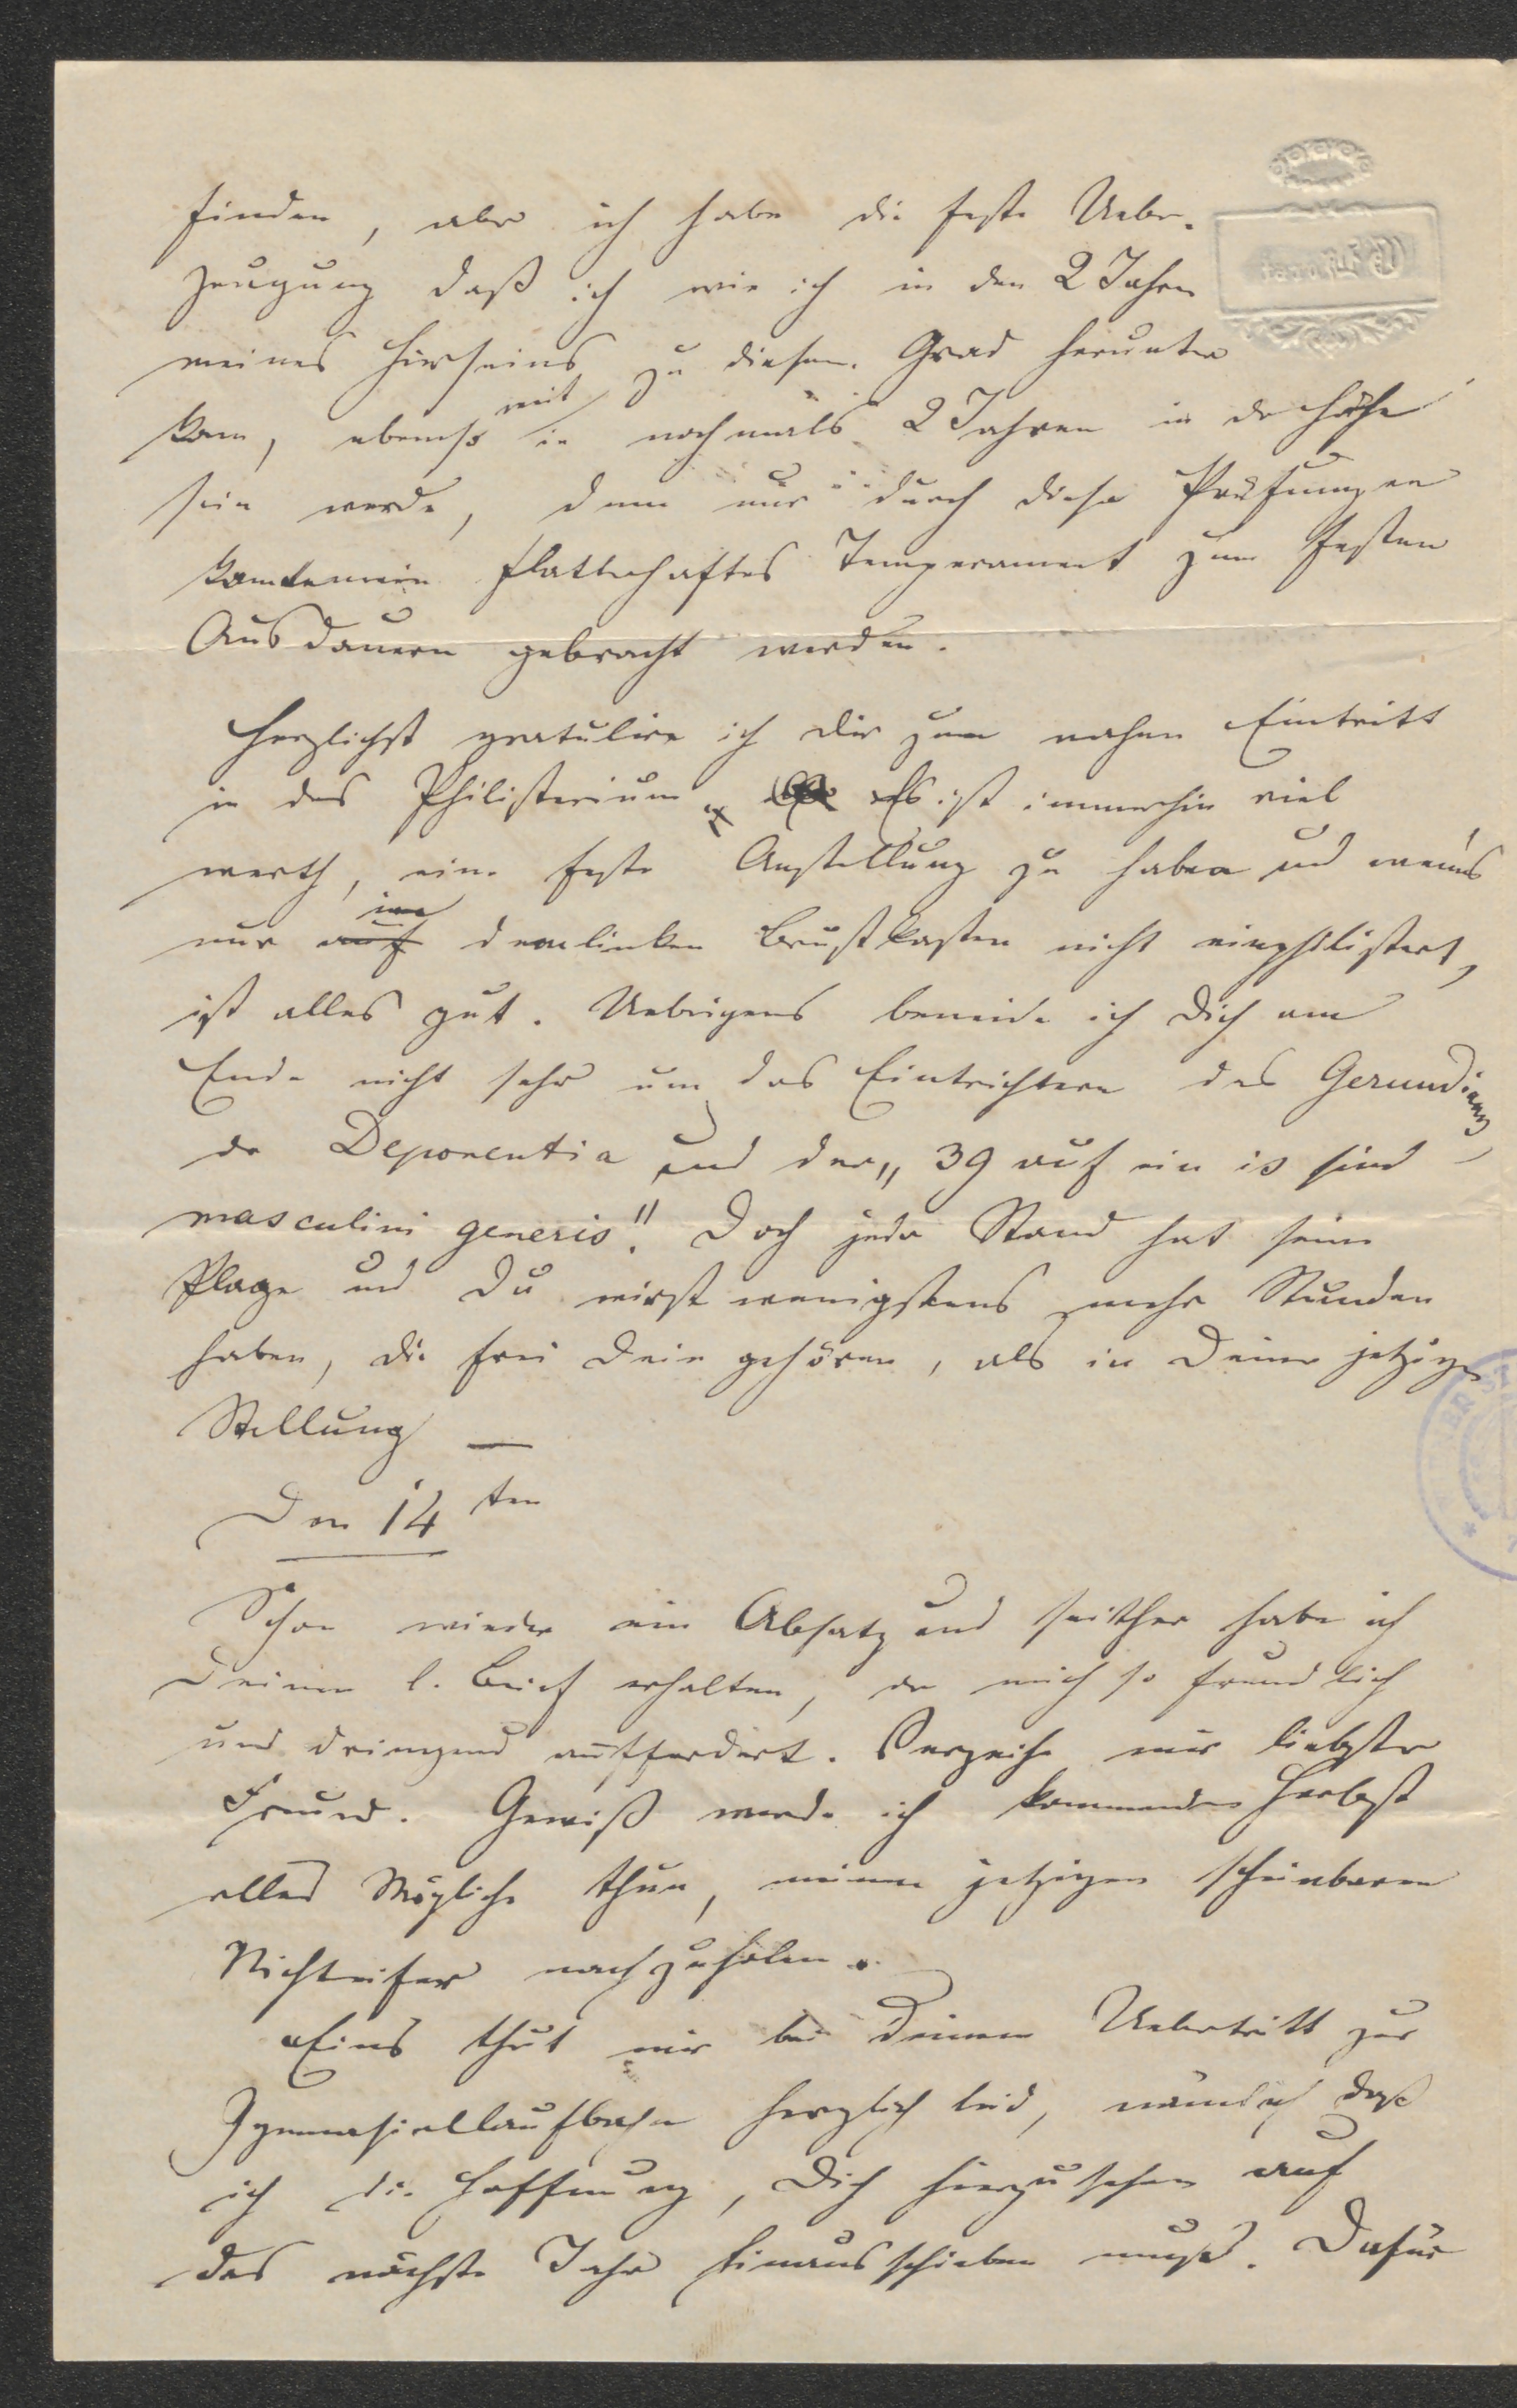 finden, aber ich habe die feste Ueber-
zeugung daß ich wie ich in den 2 Jahren
meines Hierseins zu diesem Grad herunter
mit
kam, ebenso in nochmals 2 Jahren in der Höhe
sein werde, denn nur durch diese Prüfungen
konnte mein flatterhaftes Temperament zum festen
Ausdauern gebracht werden.
Herzlichst gratulire ich Dir zum nahen Eintritt
in das Philisterium. Es ist immerhin viel
werth, eine feste Anstellung zu haben und wenns
im
nur auf dem linken Brustkasten nicht einphilistert,
ist alles gut. Uebrigens beneide ich Dich am
Ende nicht sehr um das Eintrichtern des Gerundiums
der Deponentia und der „39 auf ein is sind
masculini generis!" Doch jeder Stand hat seine
Plage und Du wirst wenigstens mehr Stunden
haben, die frei Dein gehören, als in Deiner jetzigen
Stellung —
Den 14ten
Schon wieder ein Absatz und seither habe ich
Deinen l. Brief erhalten, der mich so freundlich
und dringend auffordert. Verzeihe mir liebster
Freund. Gewiß werde ich kommenden Herbst
alles Mögliche thun, meinen jetzigen scheinbaren
Nichteifer nachzuholen.
Eins thut mir bei Deinem Uebertritt zur
Gymnasiallaufbahn herzlich leid, nämlich daß
ich die Hoffnung, Dich hierzusehen auf
das nächste Jahr hinausschieben muß. Dafür